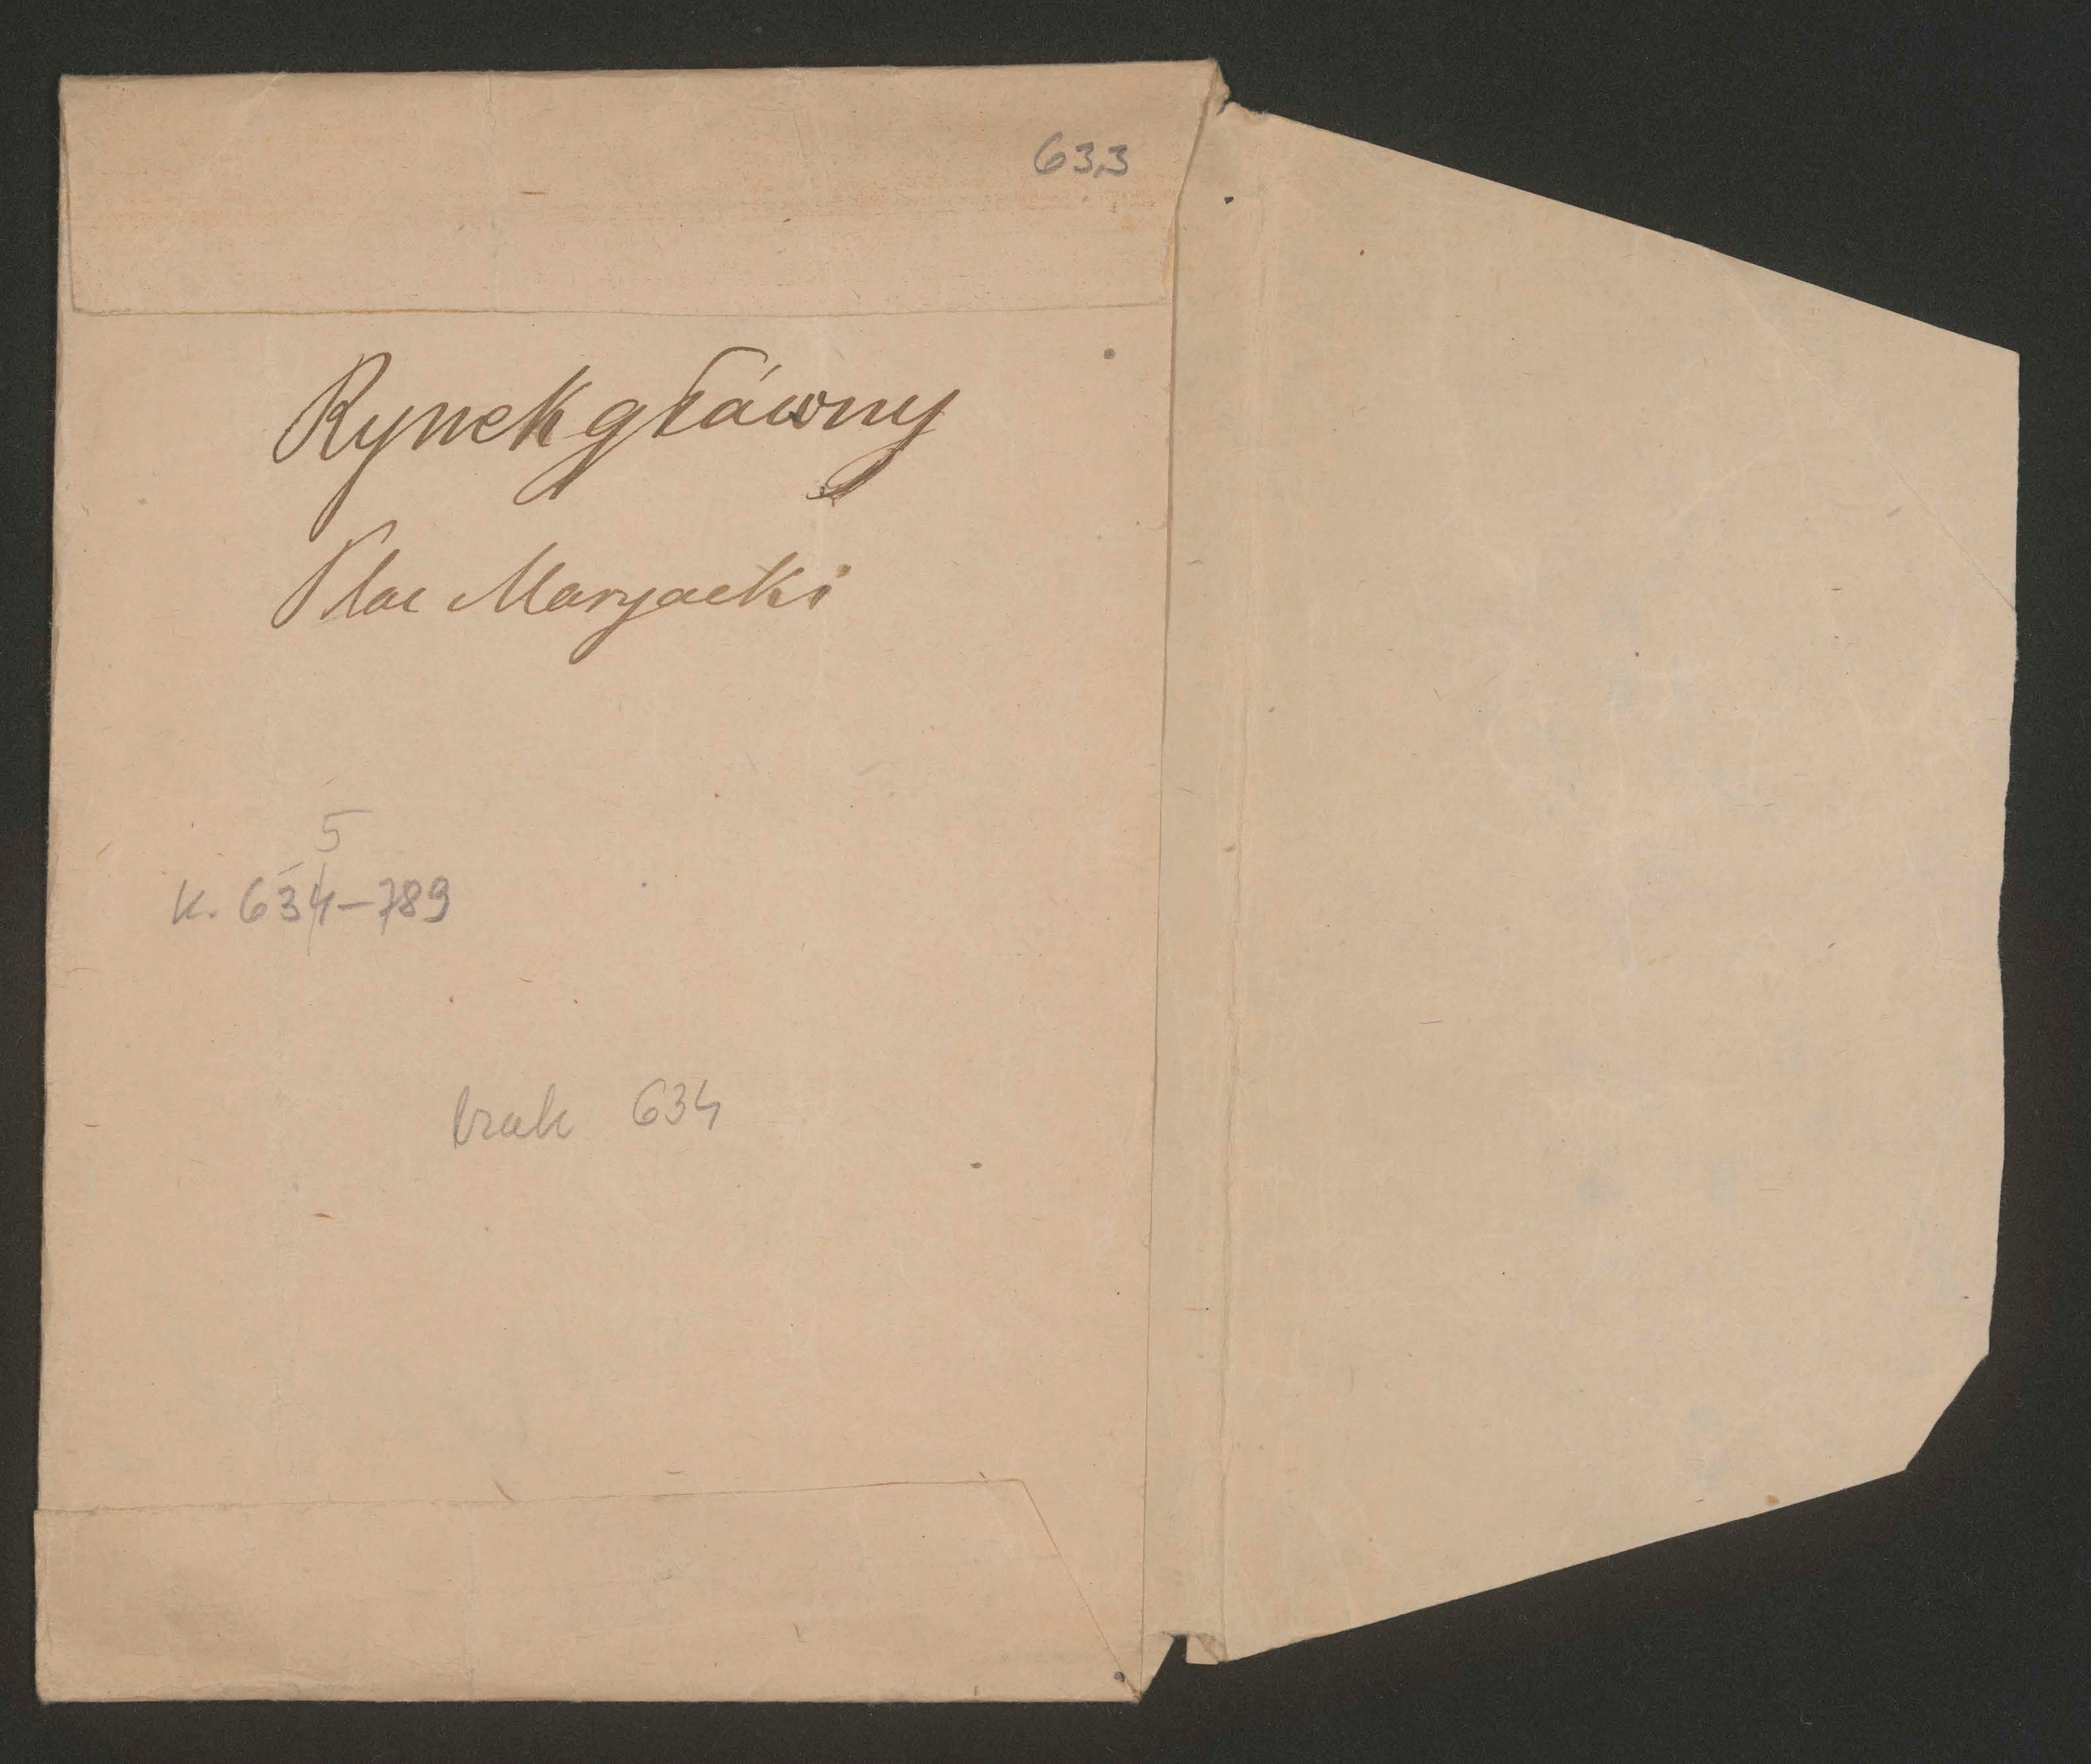 633
Rynek główny
Plac Maryacki
5
K. 634-789
brak 634